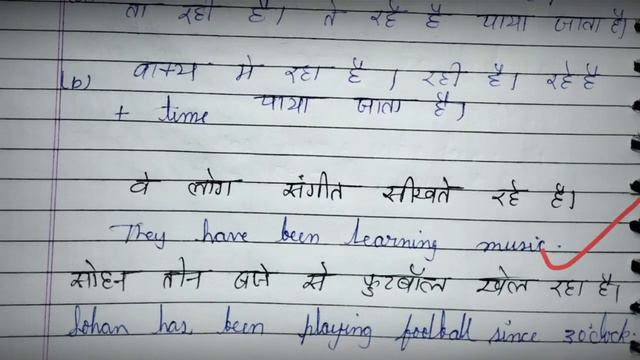 ता रही है। ते रहे है पाया जाता है।
(b) वाक्य मे रहा है। रही है। रहे है
+ time पाया जाता है।
वे लोग संगीत सीखते रहे है।
They have been learning music.
सोहन तीन बजे से फुटबॉल खेल रहा है।
Sohan has been playing football since 3o'clock.